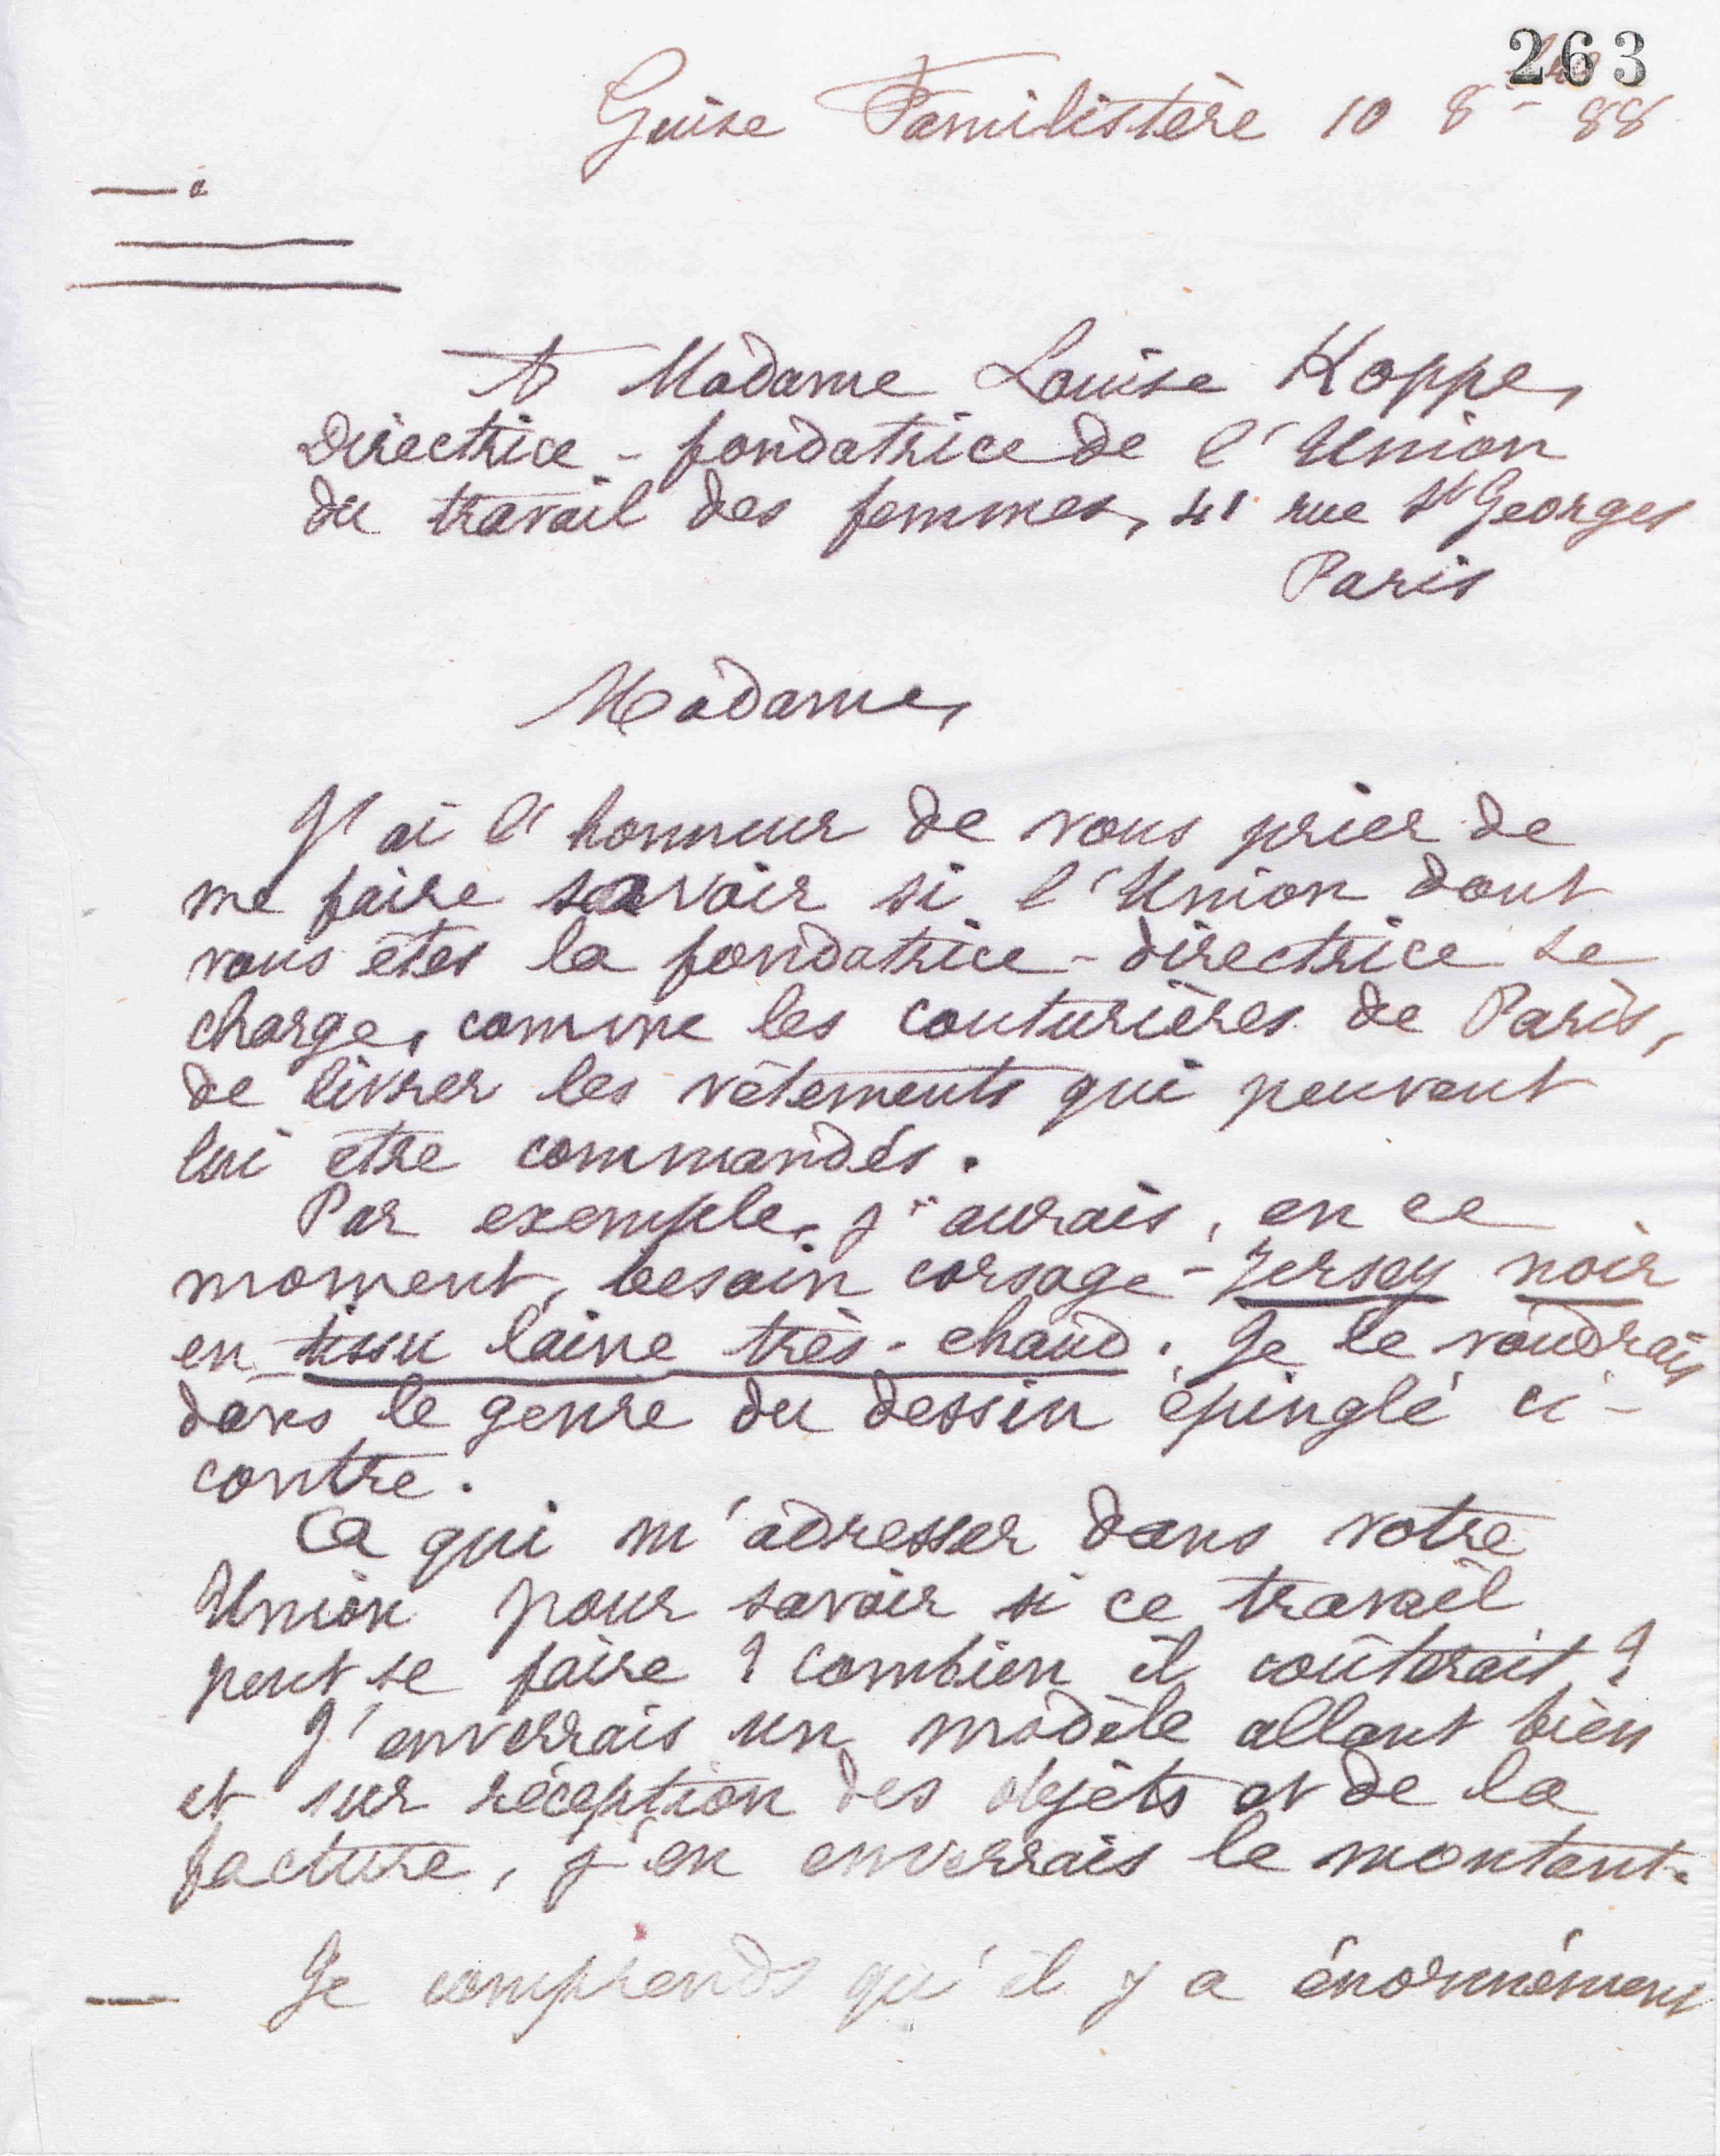 263
Guise Familistère 10 8bre 88
A Madame Louise Koppe,
Directrice-fondatrice de l'Union
du travail des femmes, 41 rue St Georges
Paris
Madame,
J'ai l'honneur de vous prier de
me faire savoir si l'Union dont
vous êtes la fondatrice-directrice se
charge, comme les couturières de Paris,
de livrer les vêtements qui peuvent
lui être commandés.
Par exemple, j'aurais, en ce
moment, besoin corsage-Jersey noir
en tissu laine très-chaud. Je le voudrais
dans le genre du dessin épinglé ci-
contre.
A qui m'adresser dans votre
Union pour savoir si ce travail
peut se faire ? combien il coûterait ?
J'enverrais un modèle allant bien
et sur réception des objets et de la
facture, j'en enverrais le montant.
Je comprends qu'il y a énormément